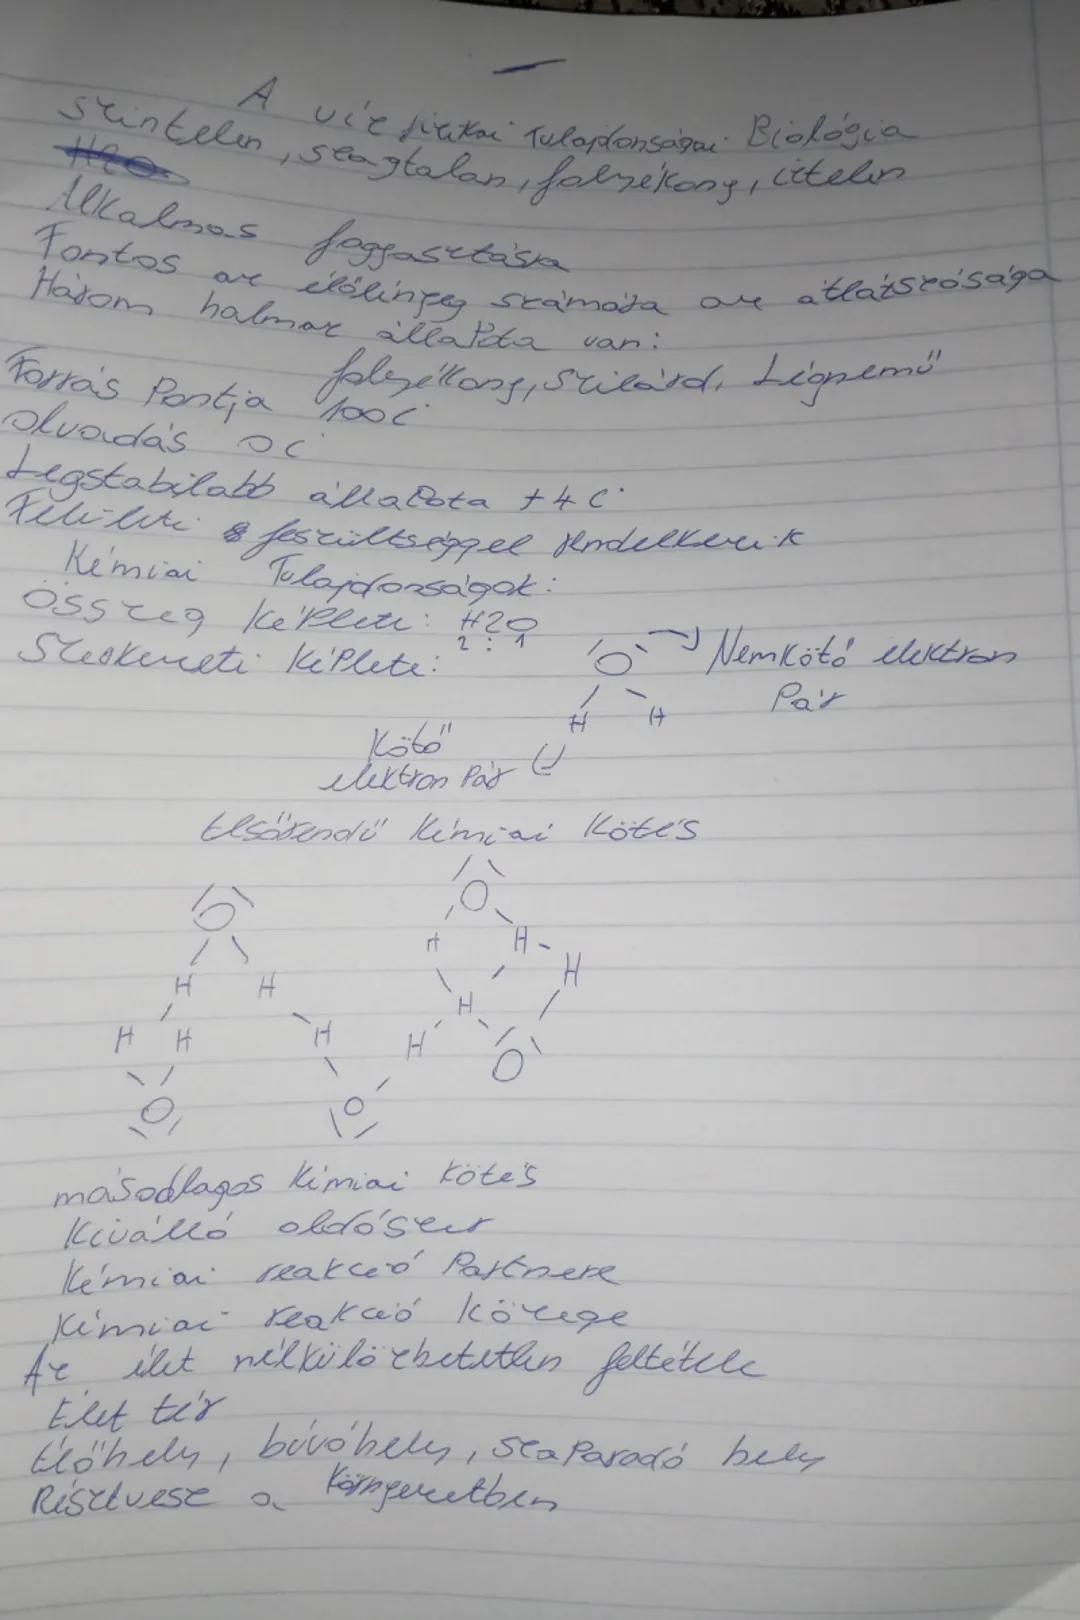 A víz fizikai Tulajdonságai Biológia
színtelen, szagtalan, folyékony, íztelen
Alkalmas foggasztásra
Fontos az élőlényeg számára az átlátszósága
Három halmaz állaPota van:
folyékony, szilárd, Légnemű
Forrás Pontja 100 C°
olvadás 0 C°
Legstabilabb állaPota +4 C°
Felületi feszültséggel rendelkezik
Kémiai Tulajdonságok:
Összeg KéPlete: H2O
2:1
Szerkezeti KéPlete:
O
Nemkötő elektron
Pár
H H
Kötő
elektron Pár
Elsőrendű Kémiai Kötés
O O
H H H H H
H H H H H
O O O
másodlagos Kémiai Kötés
Kiválló oldószer
Kémiai reakció Partnere
Kémiai reakció Közege
Az élet nélkülözhetetlen feltétele
Élet tér
Élőhely, búvóhely, szaParodó hely
Résztvesz a Környezetben